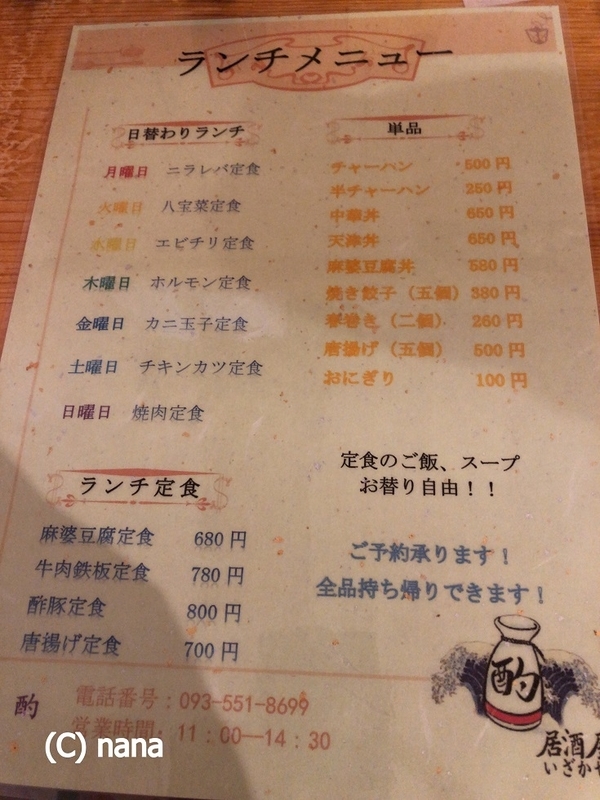 ランチメニュー
日替わりランチ
月曜日 ニラレバ定食
火曜日 八宝菜定食
水曜日 エビチリ定食
木曜日 ホルモン定食
金曜日 カニ玉子定食
土曜日 チキンカツ定食
日曜日 焼肉定食
単品
チャーハン 500円
半チャーハン 250円
中華丼 650円
天津丼 650円
麻婆豆腐丼 580円
焼き餃子（五個） 380円
春巻き（二個） 260円
唐揚げ（五個） 500円
おにぎり 100円
定食のご飯、スープ
お替り自由！！
ランチ定食
麻婆豆腐定食 680円
牛肉鉄板定食 780円
酢豚定食 800円
唐揚げ定食 700円
ご予約承ります！
全品持ち帰りできます！
酌
酌 電話番号：093-551-8699
営業時間：11：00―14：30
居酒屋
いざかや
(C) nana